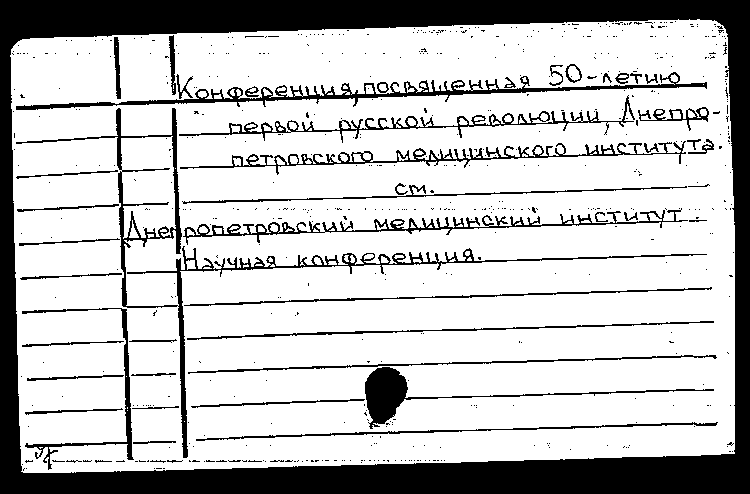 Конференция, посвященная 50-летию
первой русской революции, Днепро-
петровского медицинского института.
см.
Днепропетровский медицинский институт.
Научная конференция.